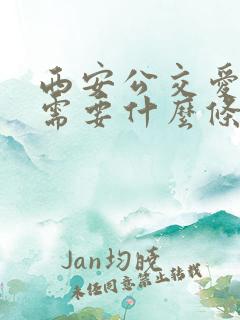 西安公交愛
需要什麼條
Jan均曉
未任同意禁止转载